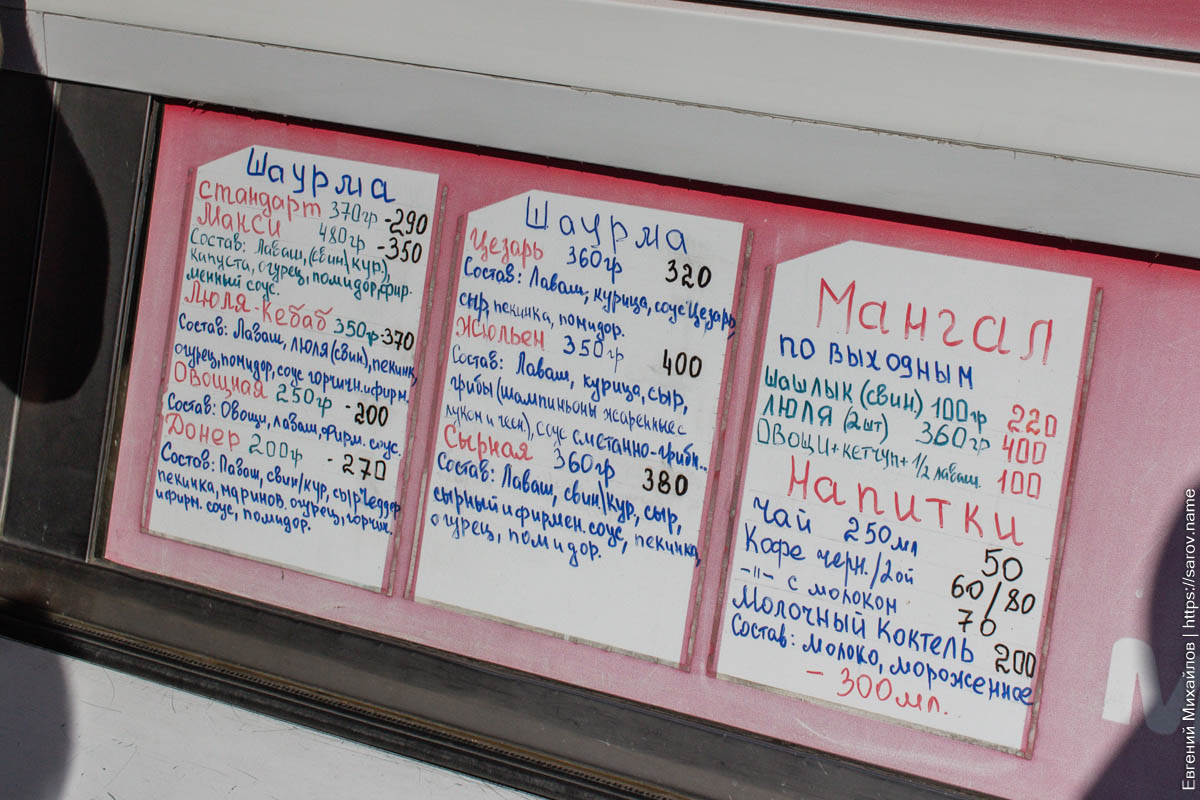 Шаурма
стандарт 370гр -290
Макси 480гр -350
Состав: Лаваш, (свин\кур),
капуста, огурец, помидор, фир-
менный соус.
Люля-Кебаб 350гр -370
Состав: Лаваш, люля (свин), пекинк,
огурец, помидор, соус горчичн. и фирм.
Овощная 250гр -200
Состав: Овощи, лаваш, фирм. соус.
Донер 200гр -270
Состав: Лаваш, свин/кур, сыр Чеддер
пекинка, маринов. огурец, горчич.
и фирм. соус, помидор.
Шаурма
Цезарь 360гр 320
Состав: Лаваш, курица, соус Цезарь,
сыр, пекинка, помидор.
Жюльен 350гр 400
Состав: Лаваш, курица, сыр,
грибы (шампиньоны жаренные с
луком и чесн), соус сметанно-грибн..
Сырная 360гр 380
Состав: Лаваш, свин\кур., сыр,
сырный и фирмен. соус, пекинка,
огурец, помидор.
Мангал
по выходным
шашлык (свин) 100гр 220
Люля (2шт) 360гр 400
Овощи+кетчуп+1/2 лаваш. 100
Напитки
Чай 250мл 50
Кофе черн./2ой 60/80
-"- с молоком 70
Молочный Коктель 200
Состав: Молоко, мороженное
- 300мл.
Евгений Михайлов | https://sarov.name